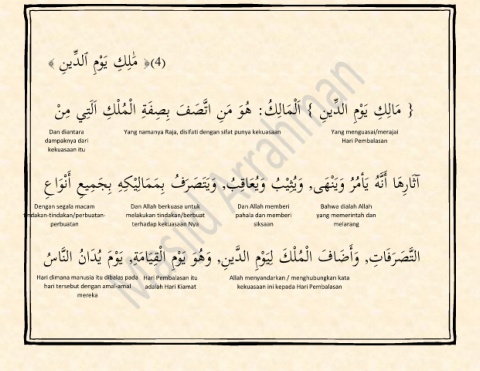 ﴿ مَٰلِكِ يَوْمِ ٱلدِّينِ ﴾(4)
{ مَالِكِ يَوْمِ الدِّينِ } اَلْمَالِكُ: هُوَ مَنِ اتَّصَفَ بِصِفَةِ الْمُلْكِ اَلَتِي مِنْ
Yang menguasai/merajai Hari Pembalasan
Yang namanya Raja, disifati dengan sifat punya kekuasaan
Dan diantara dampaknya dari kekuasaan itu
آثارِهَا أَنَّهُ يَأْمُرُ وَيَنْهَى, وَيُثِيْبُ وَيُعَاقِبُ, وَيَتَصَرَفُ بِمَمَالِيْكِهِ بِجَمِيعِ أَنْوَاعِ
Bahwa dialah Allah yang memerintah dan melarang
Dan Allah memberi pahala dan memberi siksaan
Dan Allah berkuasa untuk melakukan tindakan/berbuat terhadap kekuasaan Nya
Dengan segala macam tindakan-tindakan/perbuatan-perbuatan
التَّصَرَفَاتِ, وَأَضَافَ الْمُلْكَ لِيَوْمِ الدَّينِ, وَهُوَ يَوْمُ الْقِيَامَةِ, يَوْمَ يُدَانُ النَّاسُ
Allah menyandarkan / menghubungkan kata kekuasaan ini kepada Hari Pembalasan
Hari Pembalasan itu adalah Hari Kiamat
Hari dimana manusia itu dibalas pada hari tersebut dengan amal-amal mereka
Masjid Arrahman